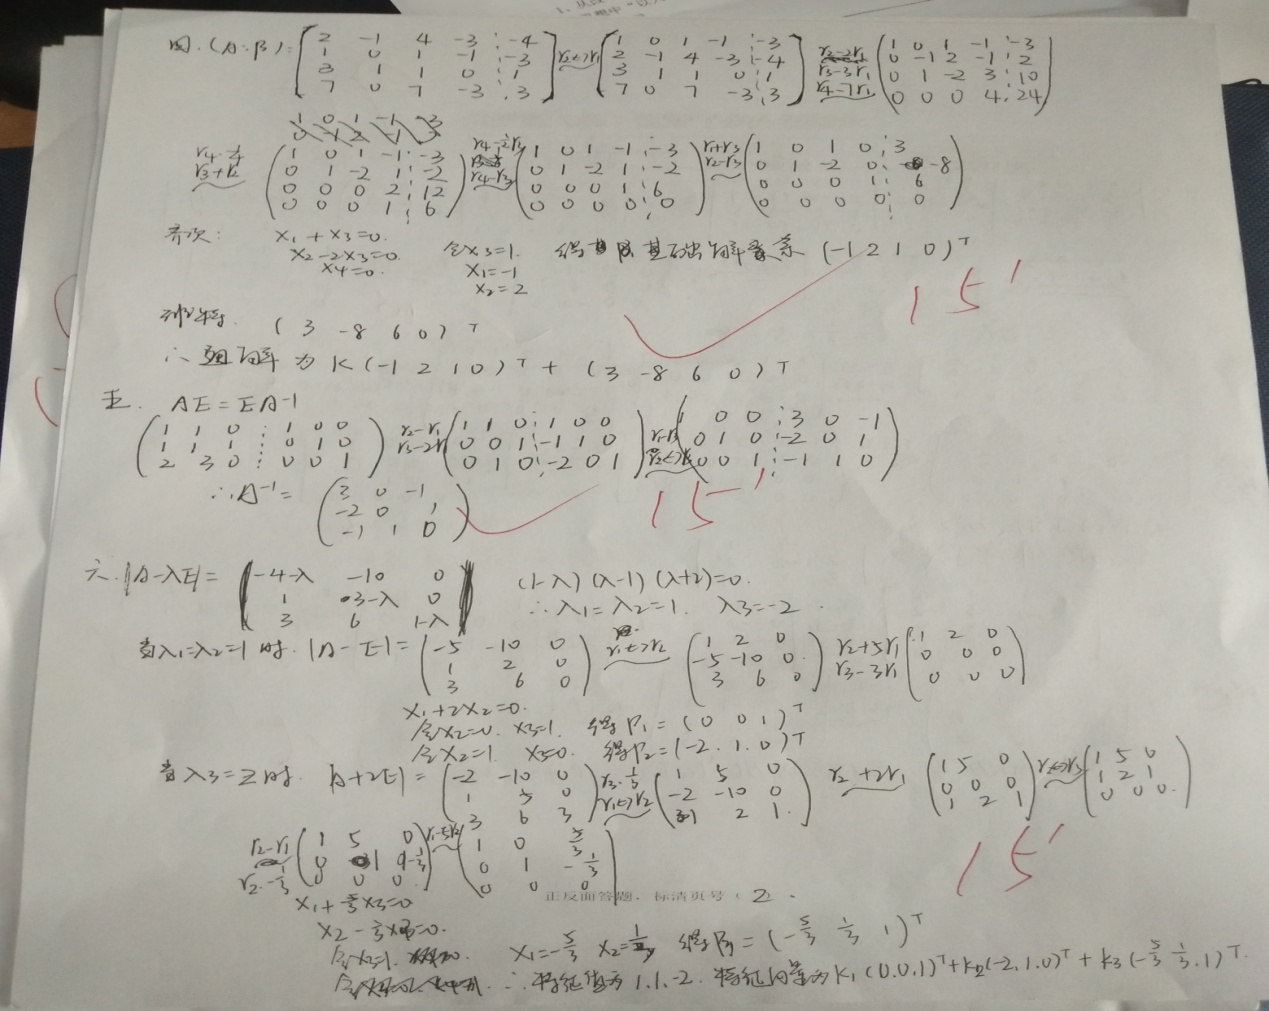 四.(A:β)= [2 -1 4 -3 -4; 1 0 1 -1 -3; 3 1 1 0 1; 7 0 7 -3 3] r2<->r1 [1 0 1 -1 -3; 2 -1 4 -3 -4; 3 1 1 0 1; 7 0 7 -3 3] r3-3r1 r4-7r1 (1 0 1 -1 -3; 0 -1 2 -1 2; 0 1 -2 3 10; 0 0 0 4 24)
r3+r2 (1 0 1 -1 -3; 0 1 -2 1 -2; 0 0 0 2 12; 0 0 0 1 6) r4-r3 (1 0 1 -1 -3; 0 1 -2 1 -2; 0 0 0 1 6; 0 0 0 0 0) r1+r3 r2-r3 (1 0 1 0 3; 0 1 -2 0 -8; 0 0 0 1 6; 0 0 0 0 0)
齐次: x1+x3=0.
x2-2x3=0. 令x3=1. 得 基础解系 (-1 2 1 0)T
x4=0. x1=-1
x2=2
15'
(3 -8 6 0)T
∴ 解为 K(-1 2 1 0)T + (3 -8 6 0)T
五. AE=EA-1
(1 1 0 1 0 0; 1 1 1 0 1 0; 2 3 0 0 0 1) r2-r1 r3-2r1 (1 1 0 1 0 0; 0 0 1 -1 1 0; 0 1 0 -2 0 1) (1 0 0 3 0 -1; 0 1 0 -2 0 1; 0 0 1 -1 1 0)
∴A-1= (3 0 -1; -2 0 1; -1 1 0)
15'
六.|A-λE|= |-4-λ -10 0; 1 3-λ 0; 3 6 1-λ| (1-λ)(λ-1)(λ+2)=0.
∴λ1=λ2=1. λ3=-2.
当λ1=λ2=1时. |A-E|= (-5 -10 0; 1 2 0; 3 6 0) r1<->r2 (1 2 0; -5 -10 0; 3 6 0) r2+5r1 r3-3r1 (1 2 0; 0 0 0; 0 0 0)
x1+2x2=0.
令x2=0. x3=1. 得P1=(0 0 1)T
令x2=1. x3=0. 得P2=(-2.1.0)T
当λ3=2时. |A+2E|= (-2 -10 0; 1 5 0; 3 6 3) r3·1/3 r1<->r2 (1 5 0; -2 -10 0; 1 2 1) r2+2r1 (1 5 0; 0 0 0; 1 2 1) r2<->r3 (1 5 0; 1 2 1; 0 0 0)
r2-r1 r2·-1/3 (1 5 0; 0 1 -1/3; 0 0 0) r1-5r2 (1 0 5/3; 0 1 -1/3; 0 0 0)
15'
正反面答题,标清页号(2).
x1+5/3x3=0
x2-1/3x3=0.
令x3=1. x1=-5/3 x2=1/3 得P3=(-5/3 1/3 1)T
∴特征值为1.1.-2.特征向量为K1(0.0.1)T+K2(-2.1.0)T+K3(-5/3 1/3.1)T.